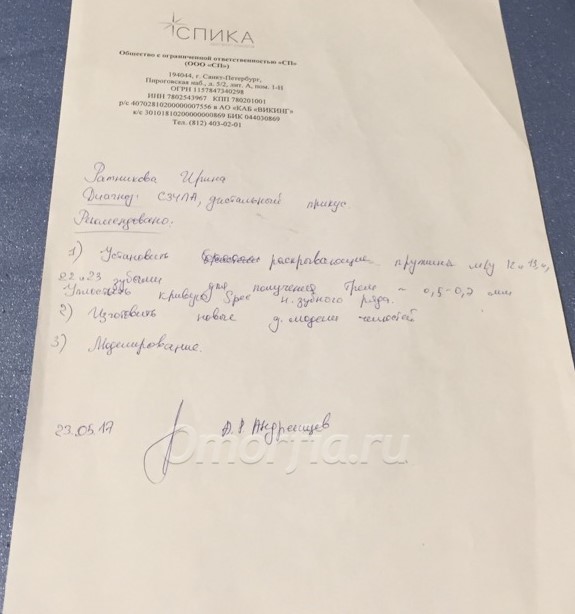 СПИКА
Общество с ограниченной ответственностью «СП»
(ООО «СП»)
194044, г. Санкт-Петербург,
Пироговская наб., д. 5/2, лит. А, пом. 1-Н
ОГРН 1157847340298
ИНН 7802543967 КПП 780201001
р/с 40702810200000007556 в АО «КАБ «ВИКИНГ»
к/с 30101810200000000869 БИК 044030869
Тел. (812) 403-02-01
Ратникова Ирина
Диагноз: СЗЧЛА, дистальный прикус
Рекомендовано:
1) Установить раскрывающие пружины м/у 12 и 13 и,
22 и 23 зубами для получения трем ~ 0,5-0,7 мм
кривую Spee н. зубного ряда.
2) Изготовить новые д. модели челюстей
3) Моделирование.
23.05.17
Omorfia.ru